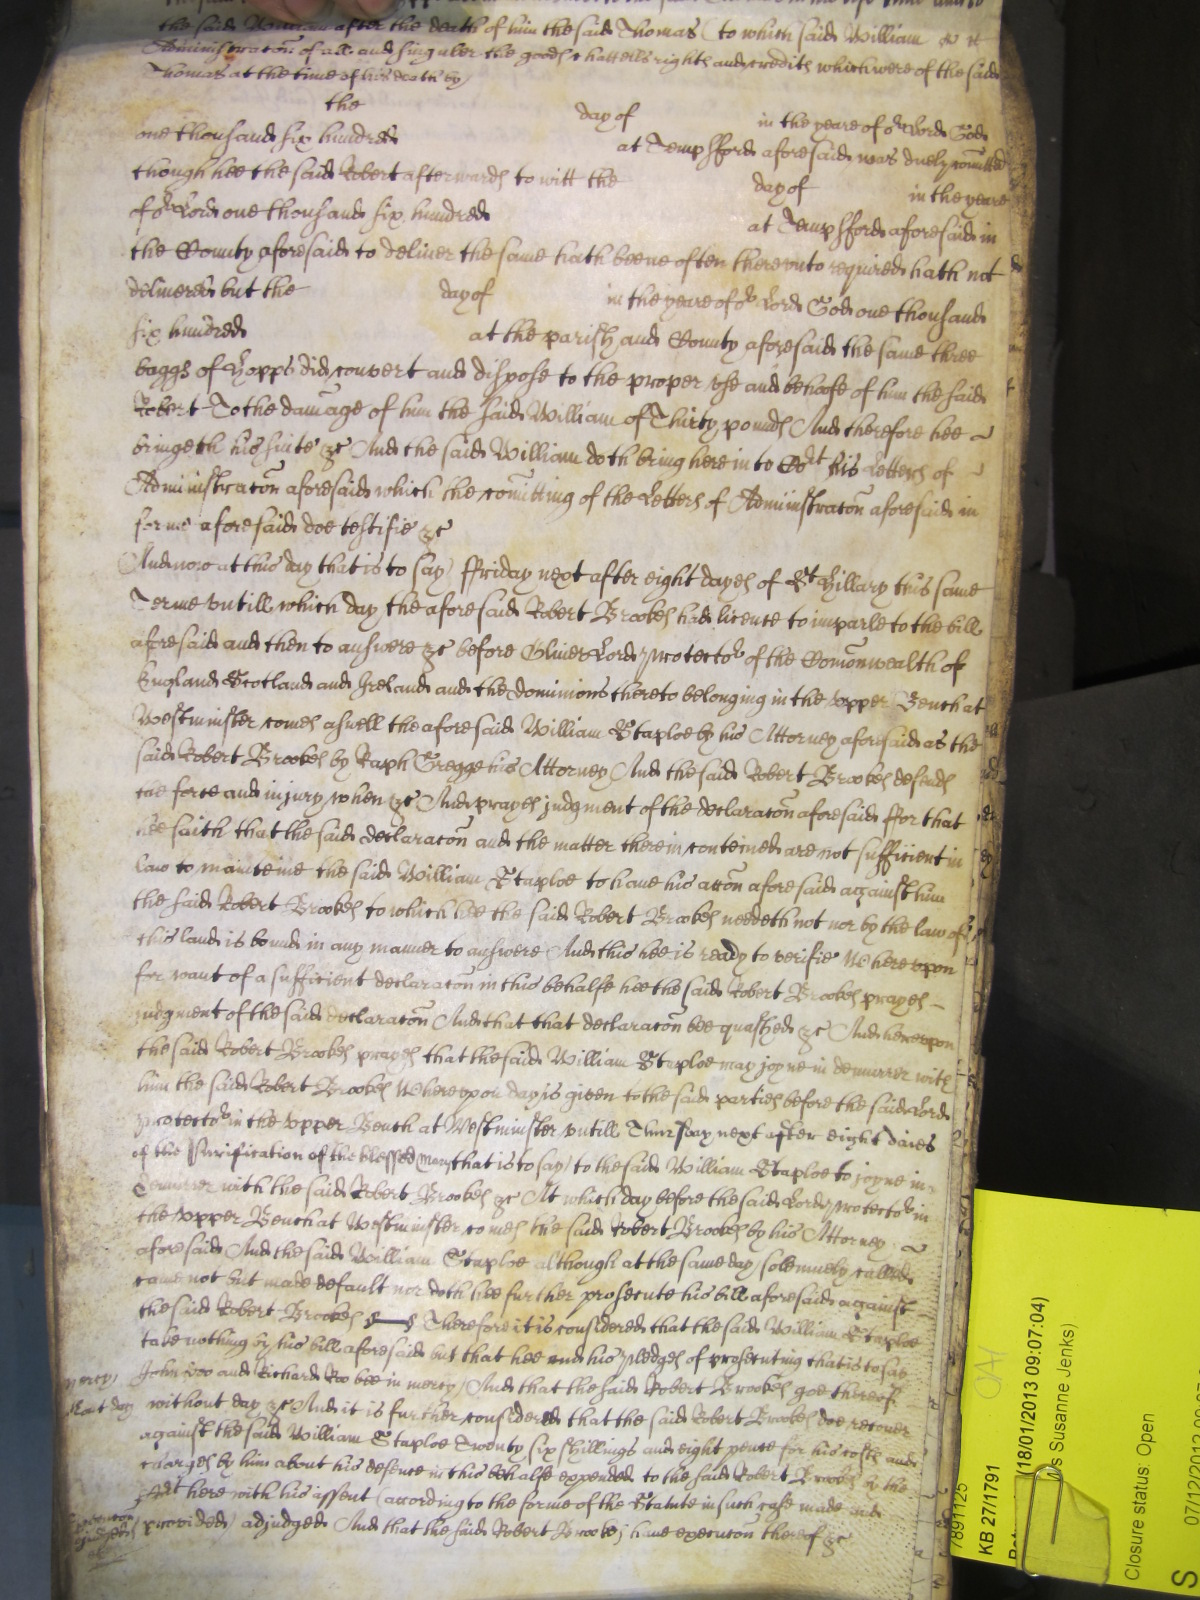 the said William after the death of him the said Thomas (to which said William
Administracon of all and singuler the goods chattells rights and credits which were of the said
Thomas at the time of his death by
the day of in the yeare of or Lord God
one thousand six hundred at Tempsford aforesaid was duely comitted
though hee the said Robert afterwards to witt the day of in the yeare
of or Lord one thousand six hundred at Tempsford aforesaid in
the County aforesaid to deliver the same hath beene often therevnto required hath not
delivered but the day of in the yeare of or Lord God one thousand
six hundred at the parish and County aforesaid the same three
baggs of Hopps did convert and dispose to the proper vse and behoofe of him the said
Robert To the damage of him the said William of Thirty pounds And therefore hee
bringeth his suite &c And the said William doth bring here into Cort his Letters of
Administracon aforesaid which the comitting of the Letters of Administracon aforesaid in
forme aforesaid doe testifie &c
And now at this day that is to say ffriday next after eight dayes of St Hillary this same
Terme vntill which day the aforesaid Robert Brookes had licence to imparle to the bill
aforesaid and then to answere &c before Oliver Lord Protector of the Comonwealth of
England Scotland and Ireland and the dominions thereto belonging in the vpper Bench at
Westminster comes aswell the aforesaid William Staploe by his Attorney aforesaid as the
said Robert Brookes by Raph Gregge his Attorney And the said Robert Brookes defends
the force and injury when &c And prayes judgment of the declaracon aforesaid ffor that
hee saith that the said declaracon and the matter therein conteined are not sufficient in
law to mainteine the said William Staploe to have his accon aforesaid against him
the said Robert Brookes to which hee the said Robert Brookes needeth not nor by the law of
this land is bound in any manner to answere And this hee is ready to verifie Wherevpon
for want of a sufficient declaracon in this behalfe hee the said Robert Brookes prayes
judgment of the said declaracon And that that declaracon bee quashed &c And herevpon
the said Robert Brookes prayes that the said William Staploe may joyne in demurrer with
him the said Robert Brookes Wherevpon day is given to the said parties before the said Lord
Protector in the vpper Bench at Westminster vntill Thursday next after eight daies
of the Purification of the blessed Mary that is to say to the said William Staploe to joyne in
demurrer with the said Robert Brookes &c At which day before the said Lord Protector in
the vpper Bench at Westminster comes the said Robert Brookes by his Attorney
aforesaid And the said William Staploe although at the same day solemnely called
came not but made default nor doth hee further prosecute his bill aforesaid against
the said Robert Brookes Therefore it is considered that the said William Staploe
take nothing by his bill aforesaid but that hee and his pledges of prosecuting that is to say
mercy John Doo and Richard Roo bee in mercy And that the said Robert Brookes goe thereof
without day &c And it is further considered that the said Robert Brookes doe recover
against the said William Staploe Twenty six shillings and eight pence for his costs and
charges by him about his defence in this behalfe expended to the said Robert Brookes by the
Cort here with his assent (according to the forme of the Statute in such case made and
provided) adjudged And that the said Robert Brookes have execucon thereof &c
7891125
KB 27/1791
18/01/2013 09:07:04)
s Susanne Jenks)
Closure status: Open
S